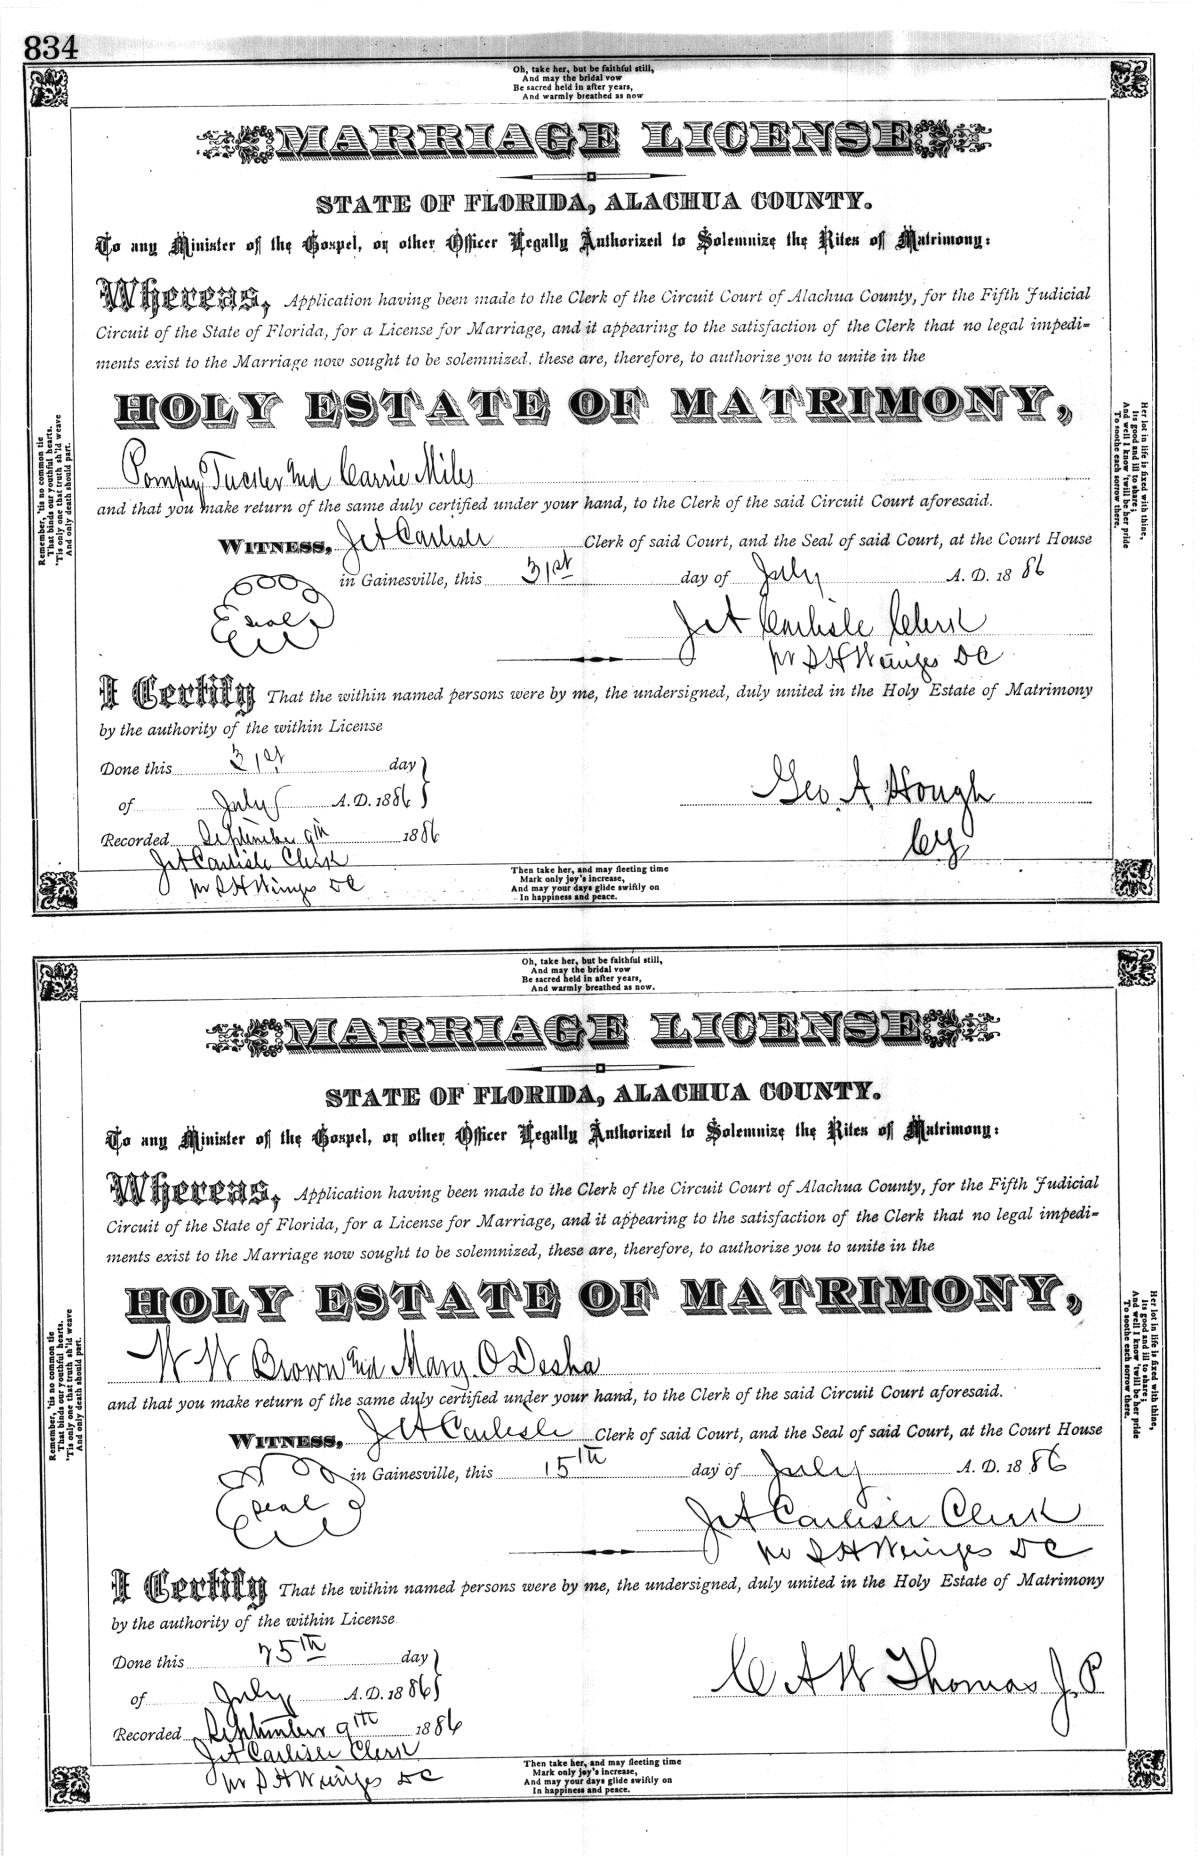 834
Oh, take her, but be faithful still,
And may the bridal vow
Be sacred held in after years,
And warmly breathed as now
MARRIAGE LICENSE
STATE OF FLORIDA, ALACHUA COUNTY.
To any Minister of the Gospel, or other Officer Legally Authorized to Solemnize the Rites of Matrimony:
Whereas, Application having been made to the Clerk of the Circuit Court of Alachua County, for the Fifth Judicial
Circuit of the State of Florida, for a License for Marriage, and it appearing to the satisfaction of the Clerk that no legal impedi-
ments exist to the Marriage now sought to be solemnized, these are, therefore, to authorize you to unite in the
HOLY ESTATE OF MATRIMONY,
Pompey Tucker and Carrie Miles
and that you make return of the same duly certified under your hand, to the Clerk of the said Circuit Court aforesaid.
WITNESS, J A Carlisle Clerk of said Court, and the Seal of said Court, at the Court House
in Gainesville, this 31st day of July A. D. 1886
Seal
J A Carlisle Clerk
pr S H Wienges DC
I Certify That the within named persons were by me, the undersigned, duly united in the Holy Estate of Matrimony
by the authority of the within License
Done this 31st day
of July A. D. 1886
Geo. A. Hough
Recorded September 9th 1886
J A Carlisle Clerk
pr S H Wienges DC
Remember, 'tis no common tie
That binds our youthful hearts.
'Tis only one that truth sh'ld weave
And only death should part.
Her lot in life is fixed with thine,
Its good and ill to share;
And well I know 'twill be her pride
To soothe each sorrow there.
Then take her, and may fleeting time
Mark only joy's increase,
And may your days glide swiftly on
In happiness and peace.
Oh, take her, but be faithful still,
And may the bridal vow
Be sacred held in after years,
And warmly breathed as now.
MARRIAGE LICENSE
STATE OF FLORIDA, ALACHUA COUNTY.
To any Minister of the Gospel, or other Officer Legally Authorized to Solemnize the Rites of Matrimony:
Whereas, Application having been made to the Clerk of the Circuit Court of Alachua County, for the Fifth Judicial
Circuit of the State of Florida, for a License for Marriage, and it appearing to the satisfaction of the Clerk that no legal impedi-
ments exist to the Marriage now sought to be solemnized, these are, therefore, to authorize you to unite in the
HOLY ESTATE OF MATRIMONY,
W W Brown and Mary O Desha
and that you make return of the same duly certified under your hand, to the Clerk of the said Circuit Court aforesaid.
WITNESS, J A Carlisle Clerk of said Court, and the Seal of said Court, at the Court House
in Gainesville, this 15th day of July A. D. 1886
Seal
J A Carlisle Clerk
pr S H Wienges DC
I Certify That the within named persons were by me, the undersigned, duly united in the Holy Estate of Matrimony
by the authority of the within License
Done this 25th day
of July A. D. 1886
C A W Thomas J. P
Recorded September 9th 1886
J A Carlisle Clerk
pr S H Wienges DC
Remember, 'tis no common tie
That binds our youthful hearts.
'Tis only one that truth sh'ld weave
And only death should part.
Her lot in life is fixed with thine,
Its good and ill to share;
And well I know 'twill be her pride
To soothe each sorrow there.
Then take her, and may fleeting time
Mark only joy's increase,
And may your days glide swiftly on
In happiness and peace.